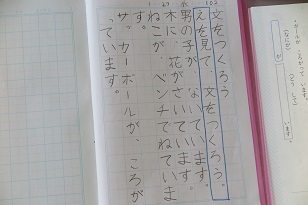 102
文をつくろう
えを見て 文をつくろう。
男の子が ないています。
木に、花がさいています。
ねこが、ベンチでねていま
す。
サッカーボールが、ころが
っています。
が